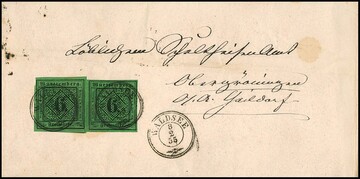 Löblichem Schultheißen Amt
Obergröningen
O/A. Gaildorf.
6
6
WALDSEE
8
2
55